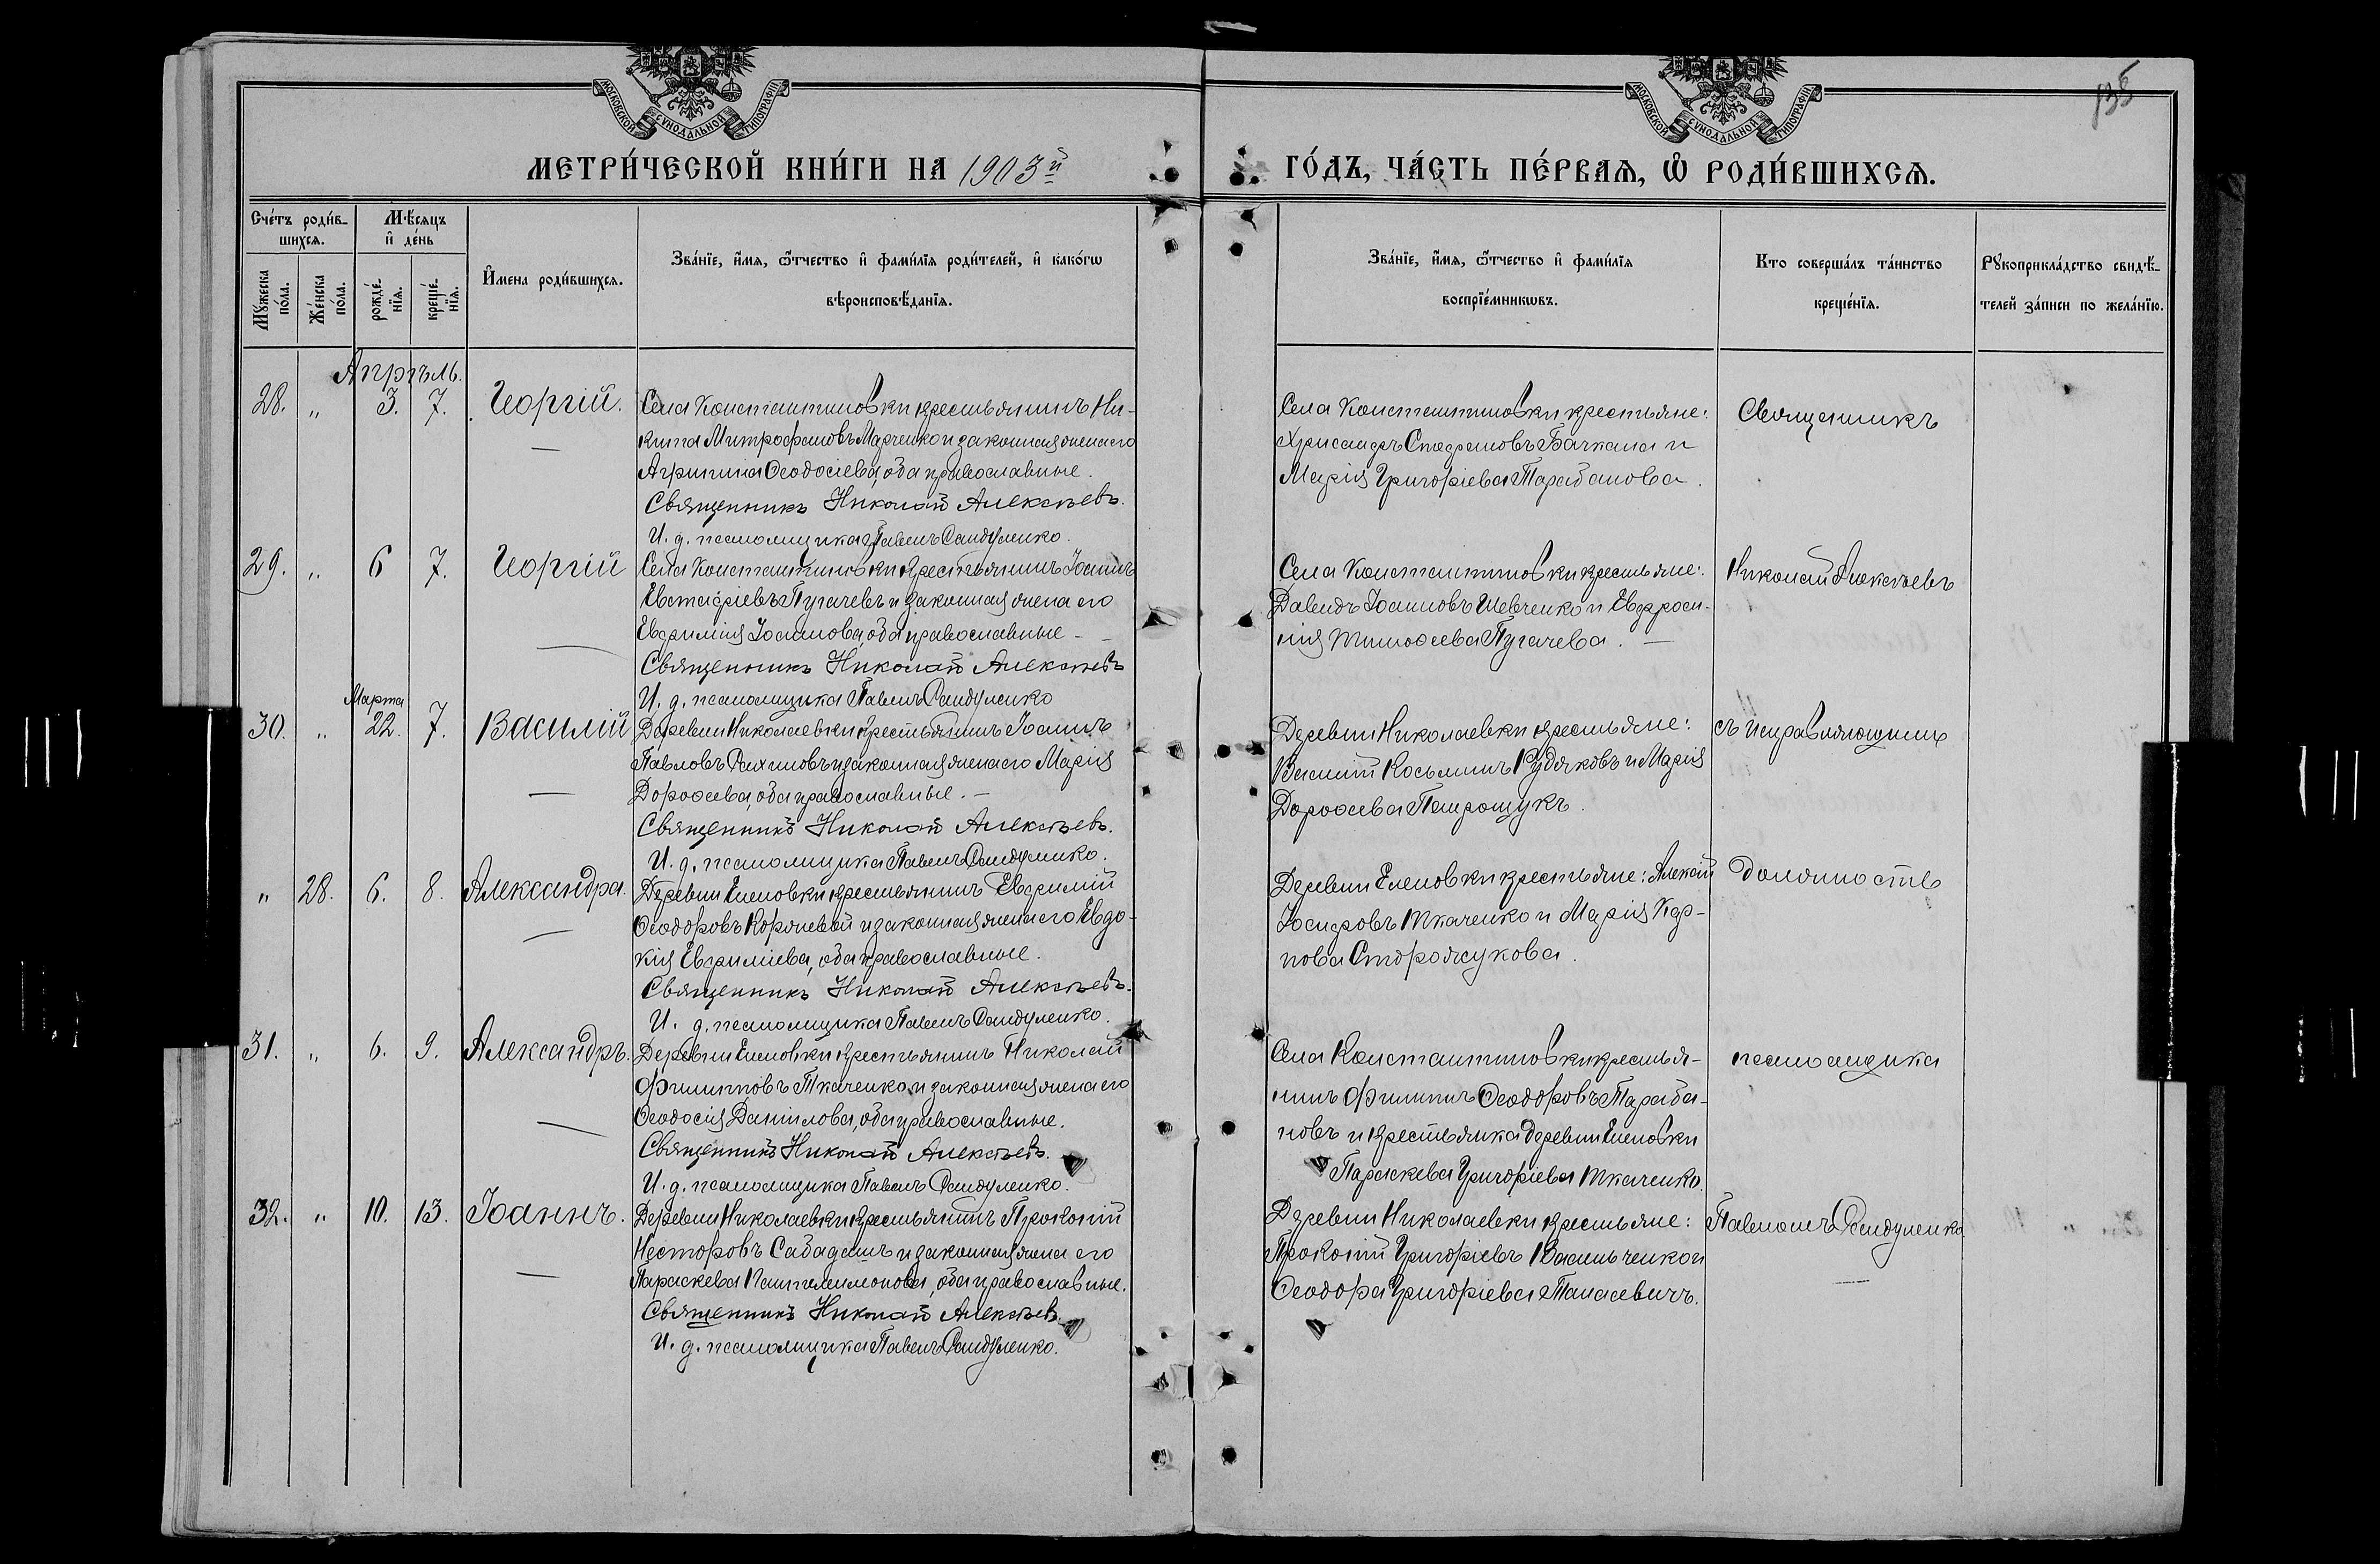 135
МОСКОВСКОЙ СѴНОДАЛЬНОЙ ТИПОГРАФІИ
МОСКОВСКОЙ СѴНОДАЛЬНОЙ ТИПОГРАФІИ
МЕТРИ́ЧЕСКОЙ КНИ́ГИ НА 1903й
ГО́ДЪ, ЧА́СТЬ ПЕ́РВАѦ, Ѡ҆ РОДИ́ВШИХСѦ.
Сче́тъ роди́в-
шихсѧ.
Мѣ́сѧцъ
и҆ де́нь
Мꙋ́жеска по́ла.
Же́нска по́ла.
рожде́-нїѧ.
креще́-нїѧ.
И҆мена роди́вшихсѧ.
Зва́нїе, и҆́мѧ, ѻ҆́тчество и҆ фами́лїѧ роди́телей, и҆ како́гѡ
вѣроисповѣ́данїѧ.
Зва́нїе, и҆́мѧ, ѻ҆́тчество и҆ фами́лїѧ
воспрїе́мникѡвъ.
Кто соверша́лъ та́инство
креще́нїѧ.
Рꙋкоприкла́дство свидѣ́-
телей за́писи по жела́нїю.
Апрѣль.
28. „ 3. 7. Георгій. Села Константиновки крестьянинъ Ни-
кита Митрофановъ Марченко и законная жена его
Агрипина Ѳеодосіева, оба православные.
Священникъ Николай Алексѣевъ.
И. д. псаломщика Павелъ Сандуленко.
Села Константиновки крестьяне:
Хрисанфъ Стефановъ Бачкала и
Марія Григоріева Тарабанова.
Священникъ
29. „ 6 7. Георгій Села Константиновки крестьянинъ Іоаннъ
Евстафіевъ Пугачевъ и законная жена его
Евфимія Іоаннова, оба православные
Священникъ Николай Алексѣевъ
И. д. псаломщика Павелъ Сандуленко
Села Константиновки крестьяне:
Давидъ Іоанновъ Шевченко и Евфроси-
нія Тимоѳеева Пугачева.
Николай Алексѣевъ
Марта
30. „ 22. 7. Василій Деревни Николаевки крестьянинъ Іоаннъ
Павловъ Сахновъ и законная жена его Марія
Дороѳеева, оба православные.
Священникъ Николай Алексѣевъ.
И. д. псаломщика Павелъ Сандуленко.
Деревни Николаевки крестьяне:
Василій Косьминъ Кудяковъ и Марія
Дороѳеева Патрощукъ.
съ исправляющимъ
„ 28. 6. 8. Александра. Деревни Еленовки крестьянинъ Евфимій
Ѳеодоровъ Корячевой и законная жена его Евдо-
кія Евфиміева, оба православные.
Священникъ Николай Алексѣевъ.
И. д. псаломщика Павелъ Сандуленко.
Деревни Еленовки крестьяне: Алексѣй
Іосифовъ Ткаченко и Марія Кар-
пова Сторожукова.
должность
31. „ 6. 9. Александръ. Деревни Еленовки крестьянинъ Николай
Филипповъ Ткаченко и законная жена его
Ѳеодосія Даніилова, оба православные.
Священникъ Николай Алексѣевъ.
И. д. псаломщика Павелъ Сандуленко.
Села Константиновки крестья-
нинъ Филиппъ Ѳеодоровъ Тараба-
новъ и крестьянка деревни Еленовки
Параскева Григоріева Ткаченко.
псаломщика
32. „ 10. 13. Іоаннъ. Деревни Николаевки крестьянинъ Прокопій
Несторовъ Сабадашъ и законная жена его
Параскева Пантелеимонова, оба православные.
Священникъ Николай Алексѣевъ.
И. д. псаломщика Павелъ Сандуленко.
Деревни Николаевки крестьяне:
Прокопій Григоріевъ Васильченко и
Ѳеодора Григоріева Танасевичъ.
Павломъ Сандуленко